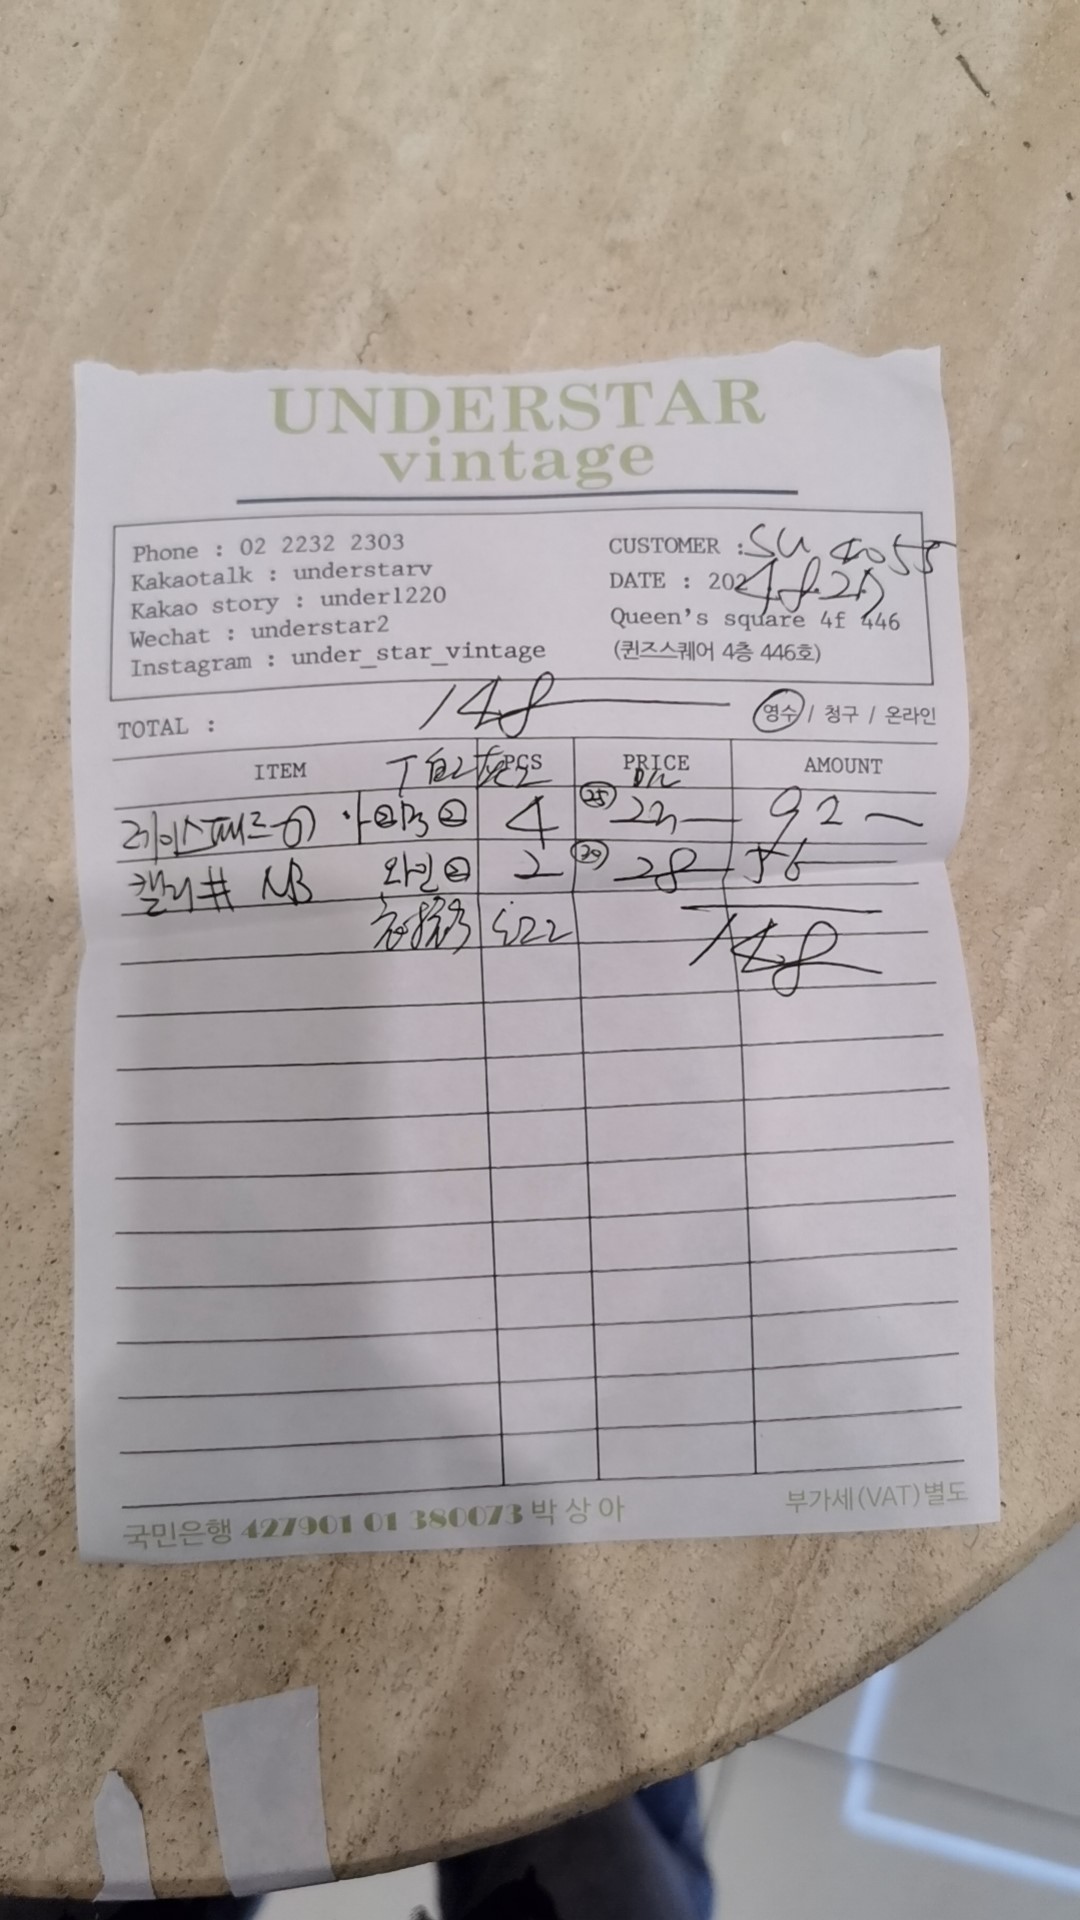 UNDERSTAR
vintage
Phone : 02 2232 2303
Kakaotalk : understarv
Kakao story : under1220
Wechat : understar2
Instagram : under_star_vintage
CUSTOMER : SU 4055
DATE : 2024.8.20
Queen's square 4f 446
(퀸즈스퀘어 4층 446호)
TOTAL : 148
영수 / 청구 / 온라인
ITEM PCS PRICE D/C AMOUNT
4 25 23 92
캘리# NB 와인② 2 30 28 56
148
국민은행 427901 01 380073 박 상 아
부가세(VAT)별도